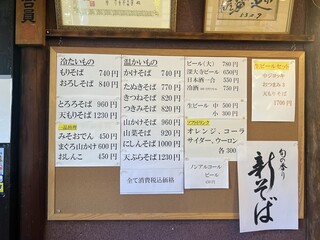 冷たいもの
もりそば 740円
おろしそば 840円
とろろそば 960円
天もりそば 1230円
一品料理
みそおでん 450円
まぐろ山かけ 600円
おしんこ 450円
温かいもの
かけそば 740円
たぬきそば 770円
きつねそば 820円
つきみそば 820円
山かけそば 960円
山菜そば 920円
にしんそば 1000円
天ぷらそば 1230円
全て消費税込価格
ビール(大) 780円
深大寺ビール 650円
日本酒 一合 550円
冷酒 750円
生ビール 中 500
小 300円
ソフトドリンク
オレンジ、コーラ
サイダー、ウーロン
各 300
ノンアルコール
ビール
生ビールセット
中ジョッキ
おつまみ
天もりそば
1700円
旬の香り
新そば